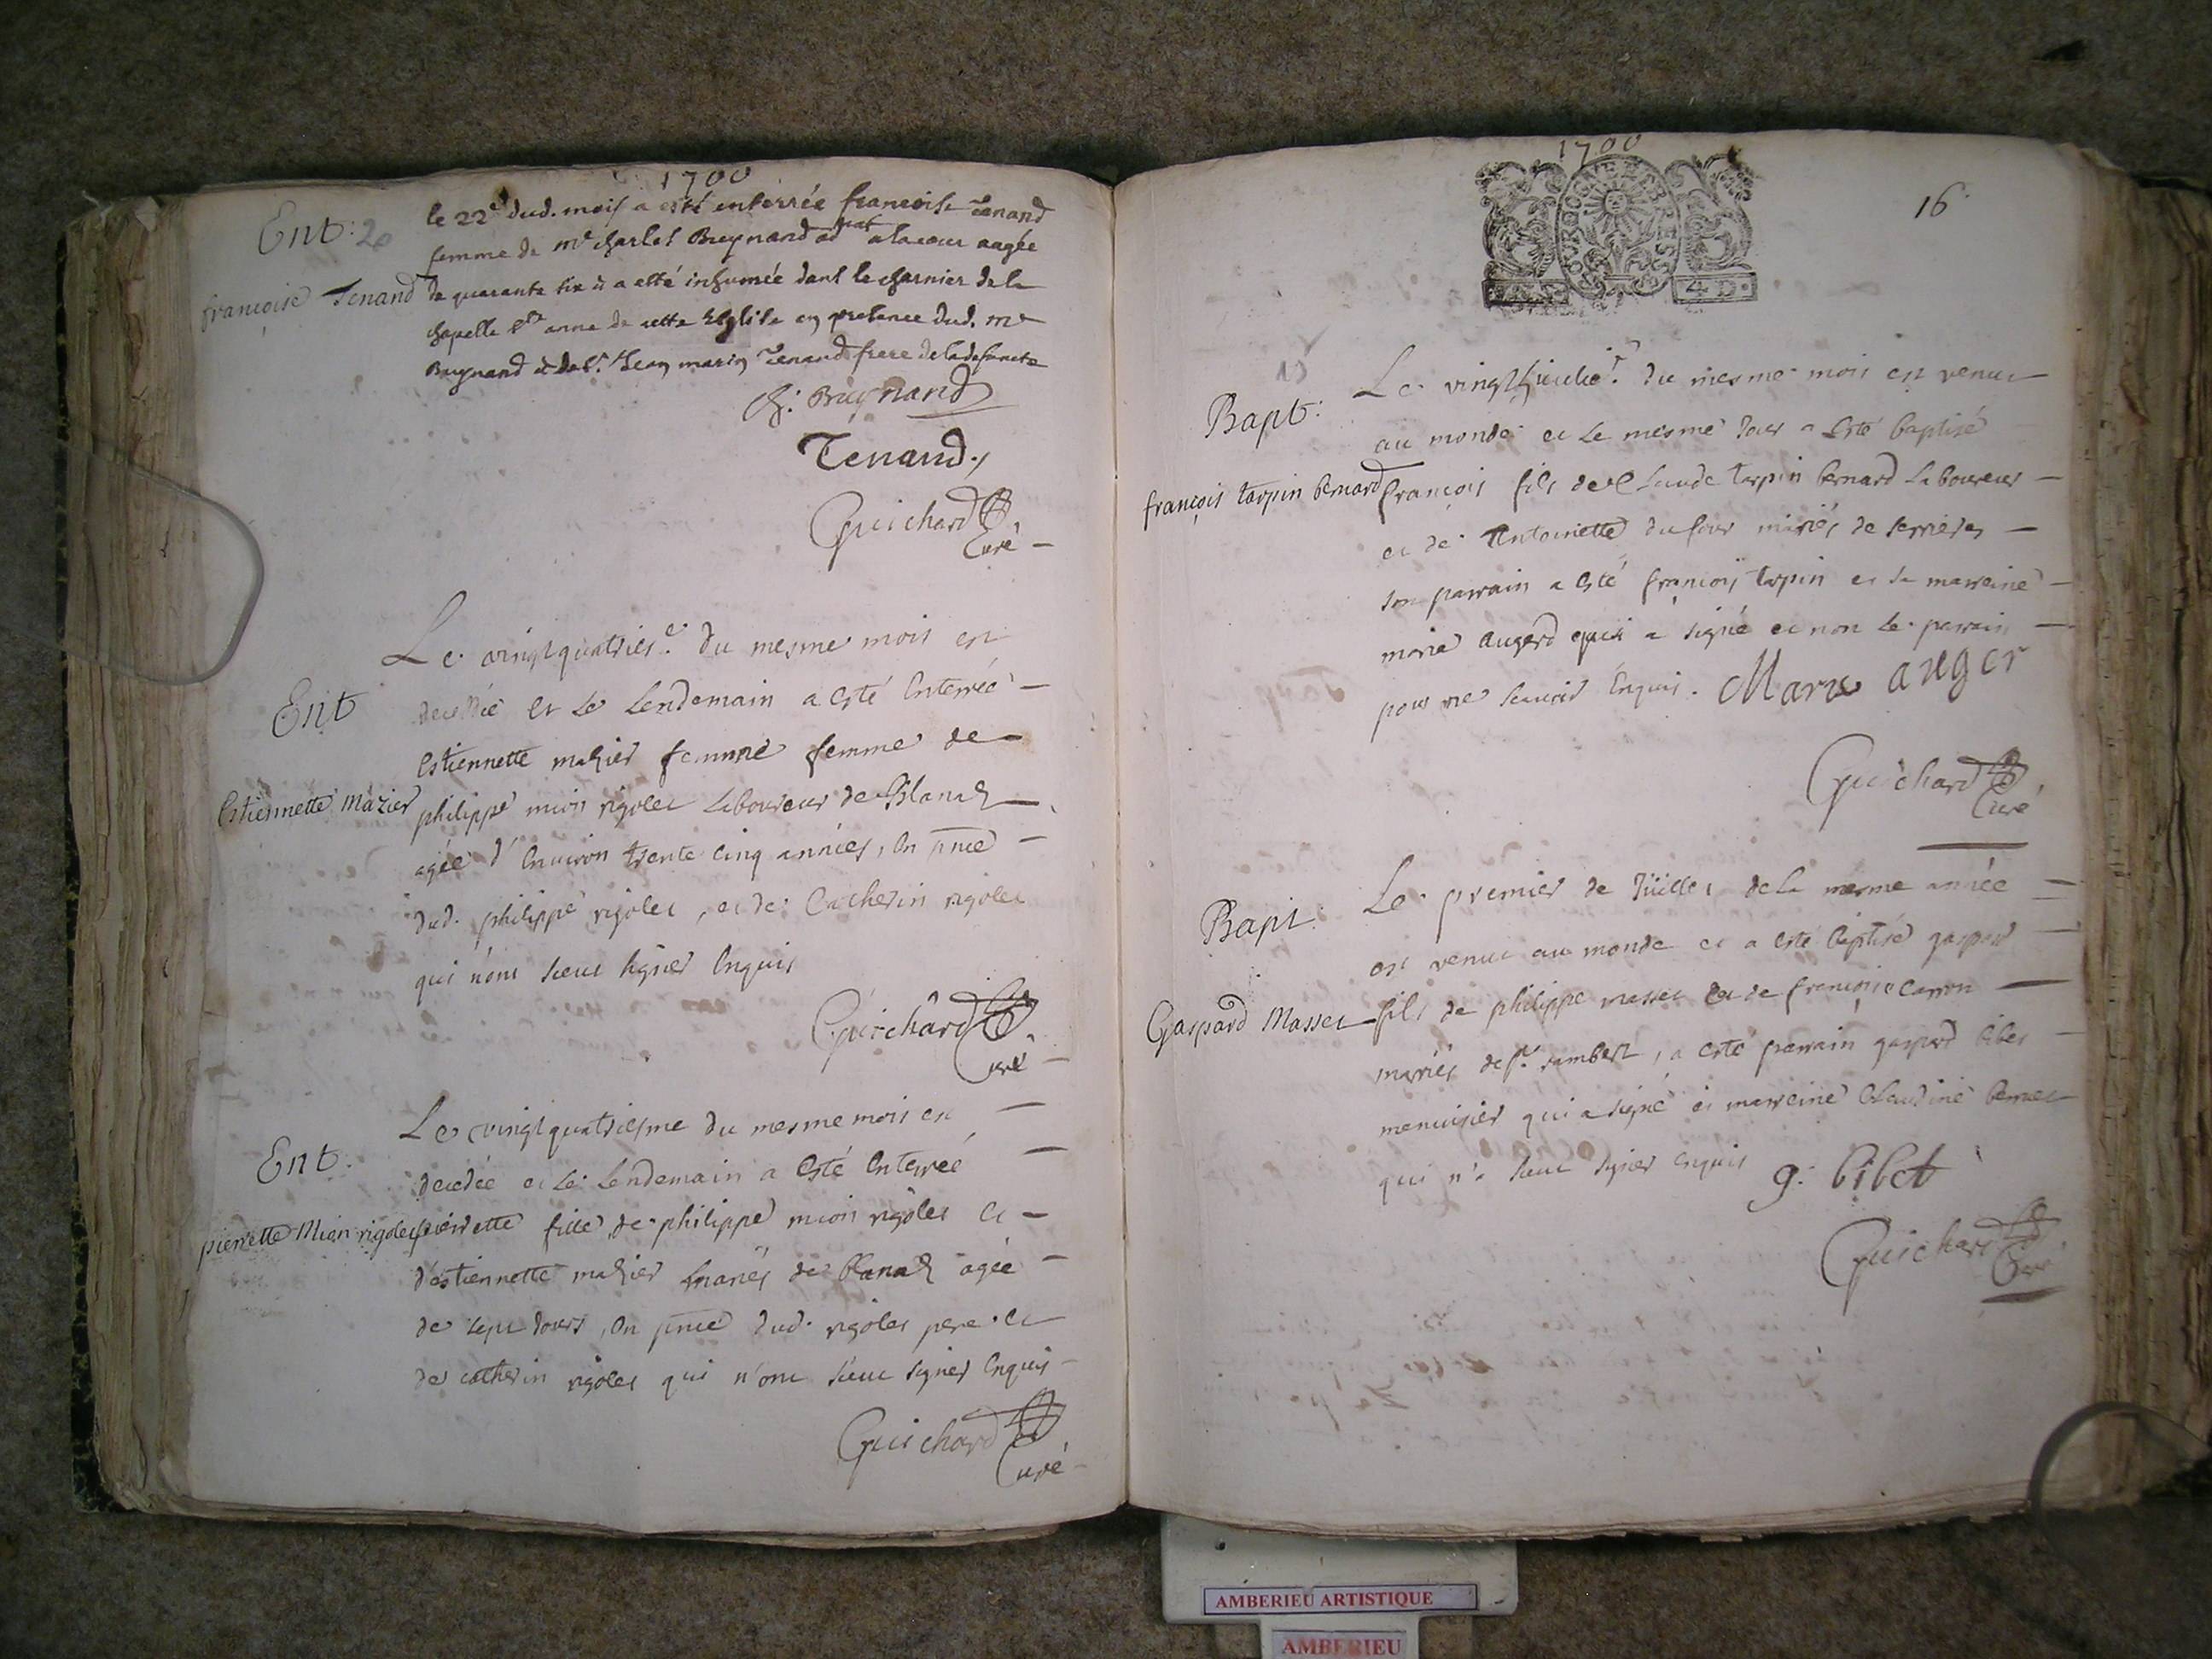 1700
Ent: 20
françoise Tenand
le 22e dud. mois a esté enterrée francoise Tenand
femme de me charles Bruynand adcat a la cour aagée
de quarante six a esté inhumée dans le charnier de la
chapelle ste anne de cette Eglise en presence dud. me
Bruynand et de sr. Jean marin Tenand frere de la defuncte
Ch: Bruynand
Tenand
Guichard
Curé
Ent
Estiennette Mazier
Le vingtquatries.e du mesme mois est
decedée et Le Lendemain a esté Enterrée
Estiennette mazier femme femme de
philippe mion rigolet Laboureur de Blanaz
agée d'Environ trente cinq années, En pnce
dud. philippe rigolet, et de Catherin rigolet
qui n'ont sceut signer Enquis
Guichard
Curé
Ent.
pierrette Mion rigolet
Le vingtquatriesme du mesme mois est
decedée et Le Lendemain a Esté Enterrée
pierrette fille de philippe mion rigolet et
d'estiennette mazier mariés de blanaz agée
de sept Jours, En pnce dud. rigolet pere et
de catherin rigolet qui n'ont sceut signer Enquis
Guichard
Curé
1700
16
15
Bapt:
françois tarpin bernard
Le du mesme mois est venu
au monde et Le mesme Jour a Esté baptisé
françois fils de Claude tarpin bernard Laboureur
et de Antoinette dufour mariés de serrieres
son parrain a Esté françois tarpin et sa marreine
marie augerd qui a signé et non le parain
pour ne scavoir Enquis. Marie auger
Guichard
Curé
Bapt:
Gaspard Masset
Le premier de Jüillet de la mesme année
est venu au monde et a esté baptisé gaspard
fils de philippe masset et de françoise Carron
mariés de st. rambert, a esté parrain gaspard bibet
menuisier qui a signé et marreine Claudine bernet
qui n'a sceut signer enquis g: bibet
Guichard
Curé
AMBERIEU ARTISTIQUE
AMBERIEU